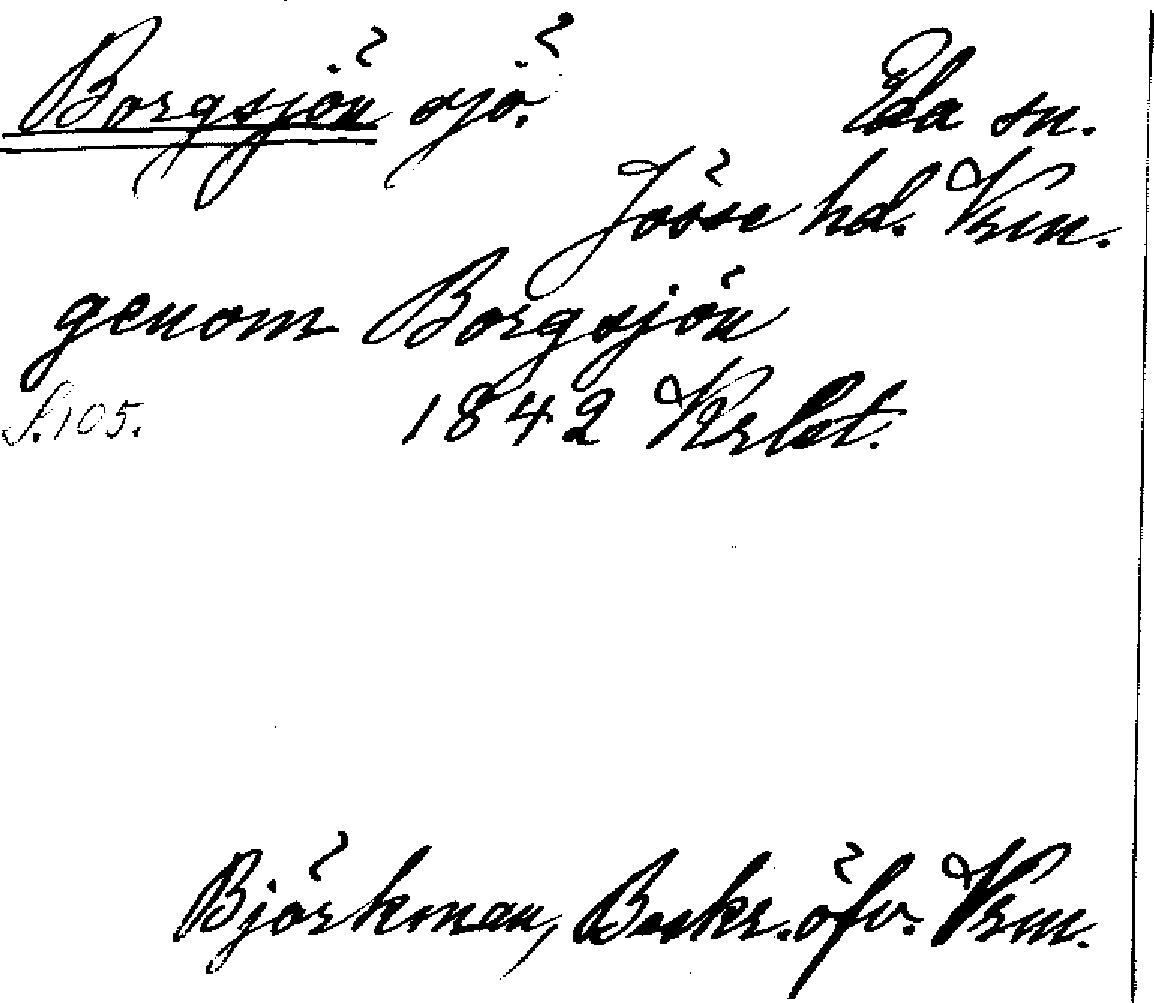 Borgsjön sjö. Eda sn.
Jösse hd. Vrm.
genom Borgsjön
S. 105. 1842 Krlst.
Björkman, Beskr. öfv. Vrm.